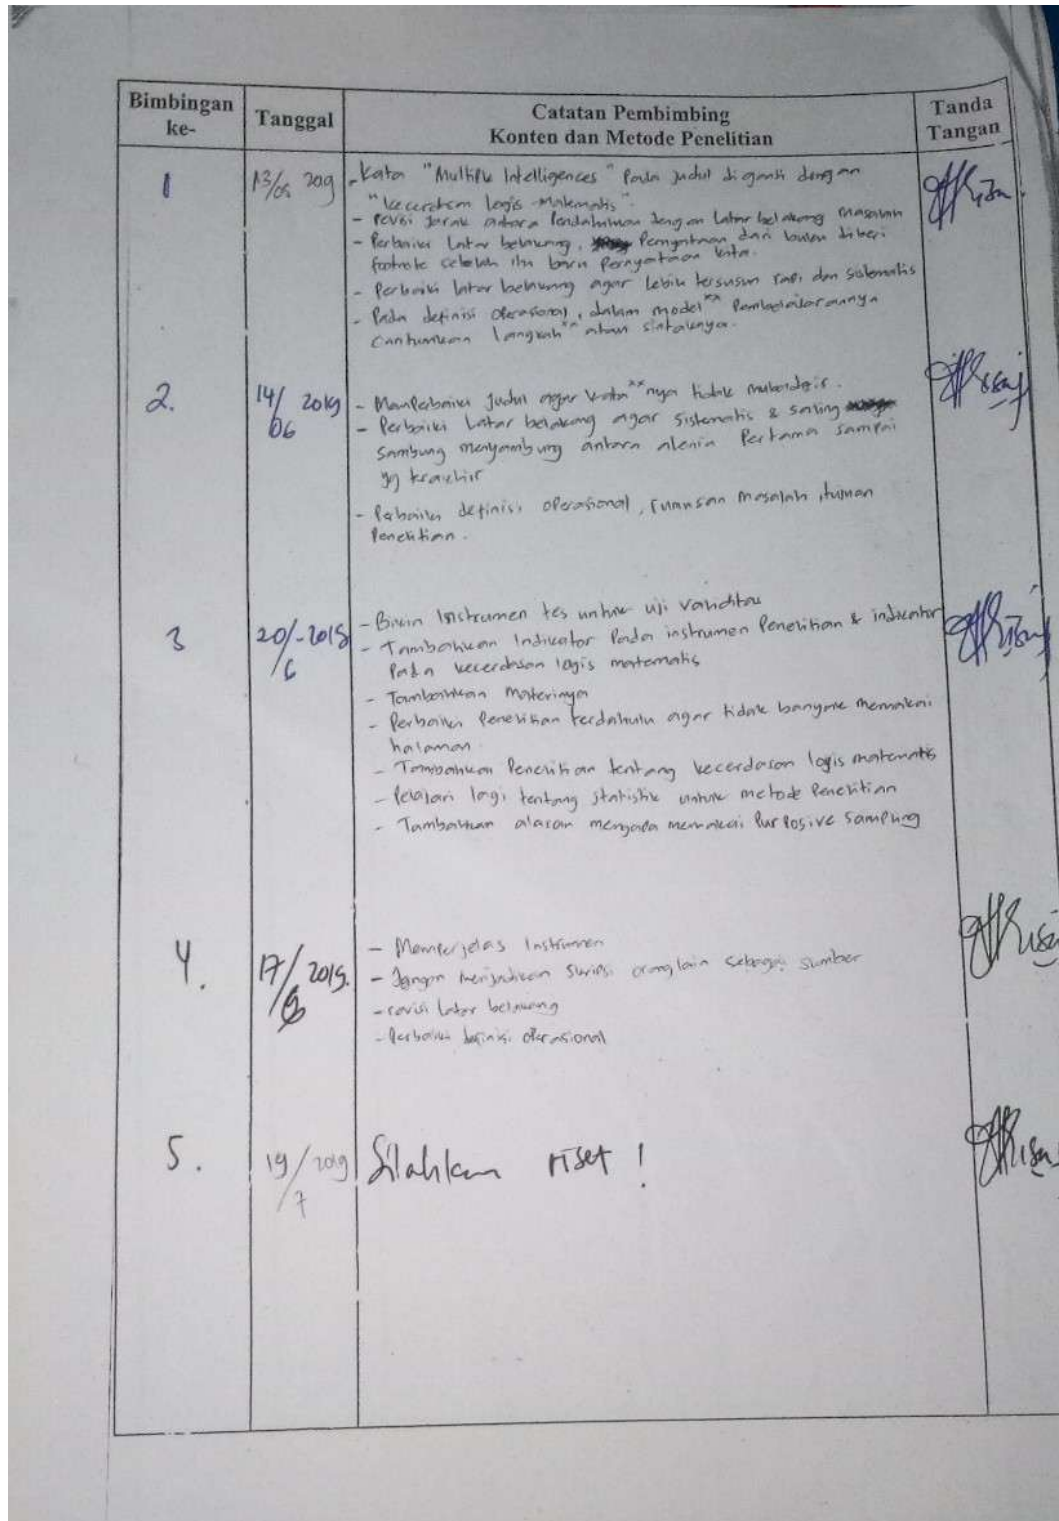 Bimbingan ke-
Tanggal
Catatan Pembimbing
Konten dan Metode Penelitian
Tanda Tangan
1
13/05 2019
- Kata "Multiple Intelligences" Pada judul diganti dengan
"kecerdasan logis-Matematis".
- revisi Jarak antara Pendahuluan dengan Latar belakang Masalah
- Perbaiki Latar belakang, Pernyataan dari buku diberi
footnote setelah itu baru Pernyataan kita.
- Perbaiki latar belakang agar Lebih tersusun rapi dan sistematis
- Pada definisi operasional, dalam model** Pembelajarannya
Cantumkan langkah** atau sintaknya.
2.
14/06 2019
- Memperbaiki judul agar kata**nya tidak mubadzir.
- Perbaiki Latar belakang agar sistematis & saling
sambung menyambung antara alenia Pertama sampai
yg terakhir
- Perbaiki definisi operasional, rumusan masalah, tujuan
Penelitian.
3
20/6-2019
- Bikin Instrumen tes untuk uji validitas
- Tambahkan Indikator Pada instrumen Penelitian & indikator
Pada kecerdasan logis matematis
- Tambahkan Materinya
- Perbaiki Penelitian terdahulu agar tidak banyak memakai
halaman.
- Tambahkan Penelitian tentang kecerdasan logis matematis
- Pelajari lagi tentang statistik untuk metode Penelitian
- Tambahkan alasan mengapa memakai Purposive Sampling
4.
17/ 2019.
- Memperjelas Instrumen
- Jangan menjadikan skripsi orang lain sebagai sumber
- revisi latar belakang
- Perbaiki definisi operasional
5.
19/7 2019
Silahkan riset !